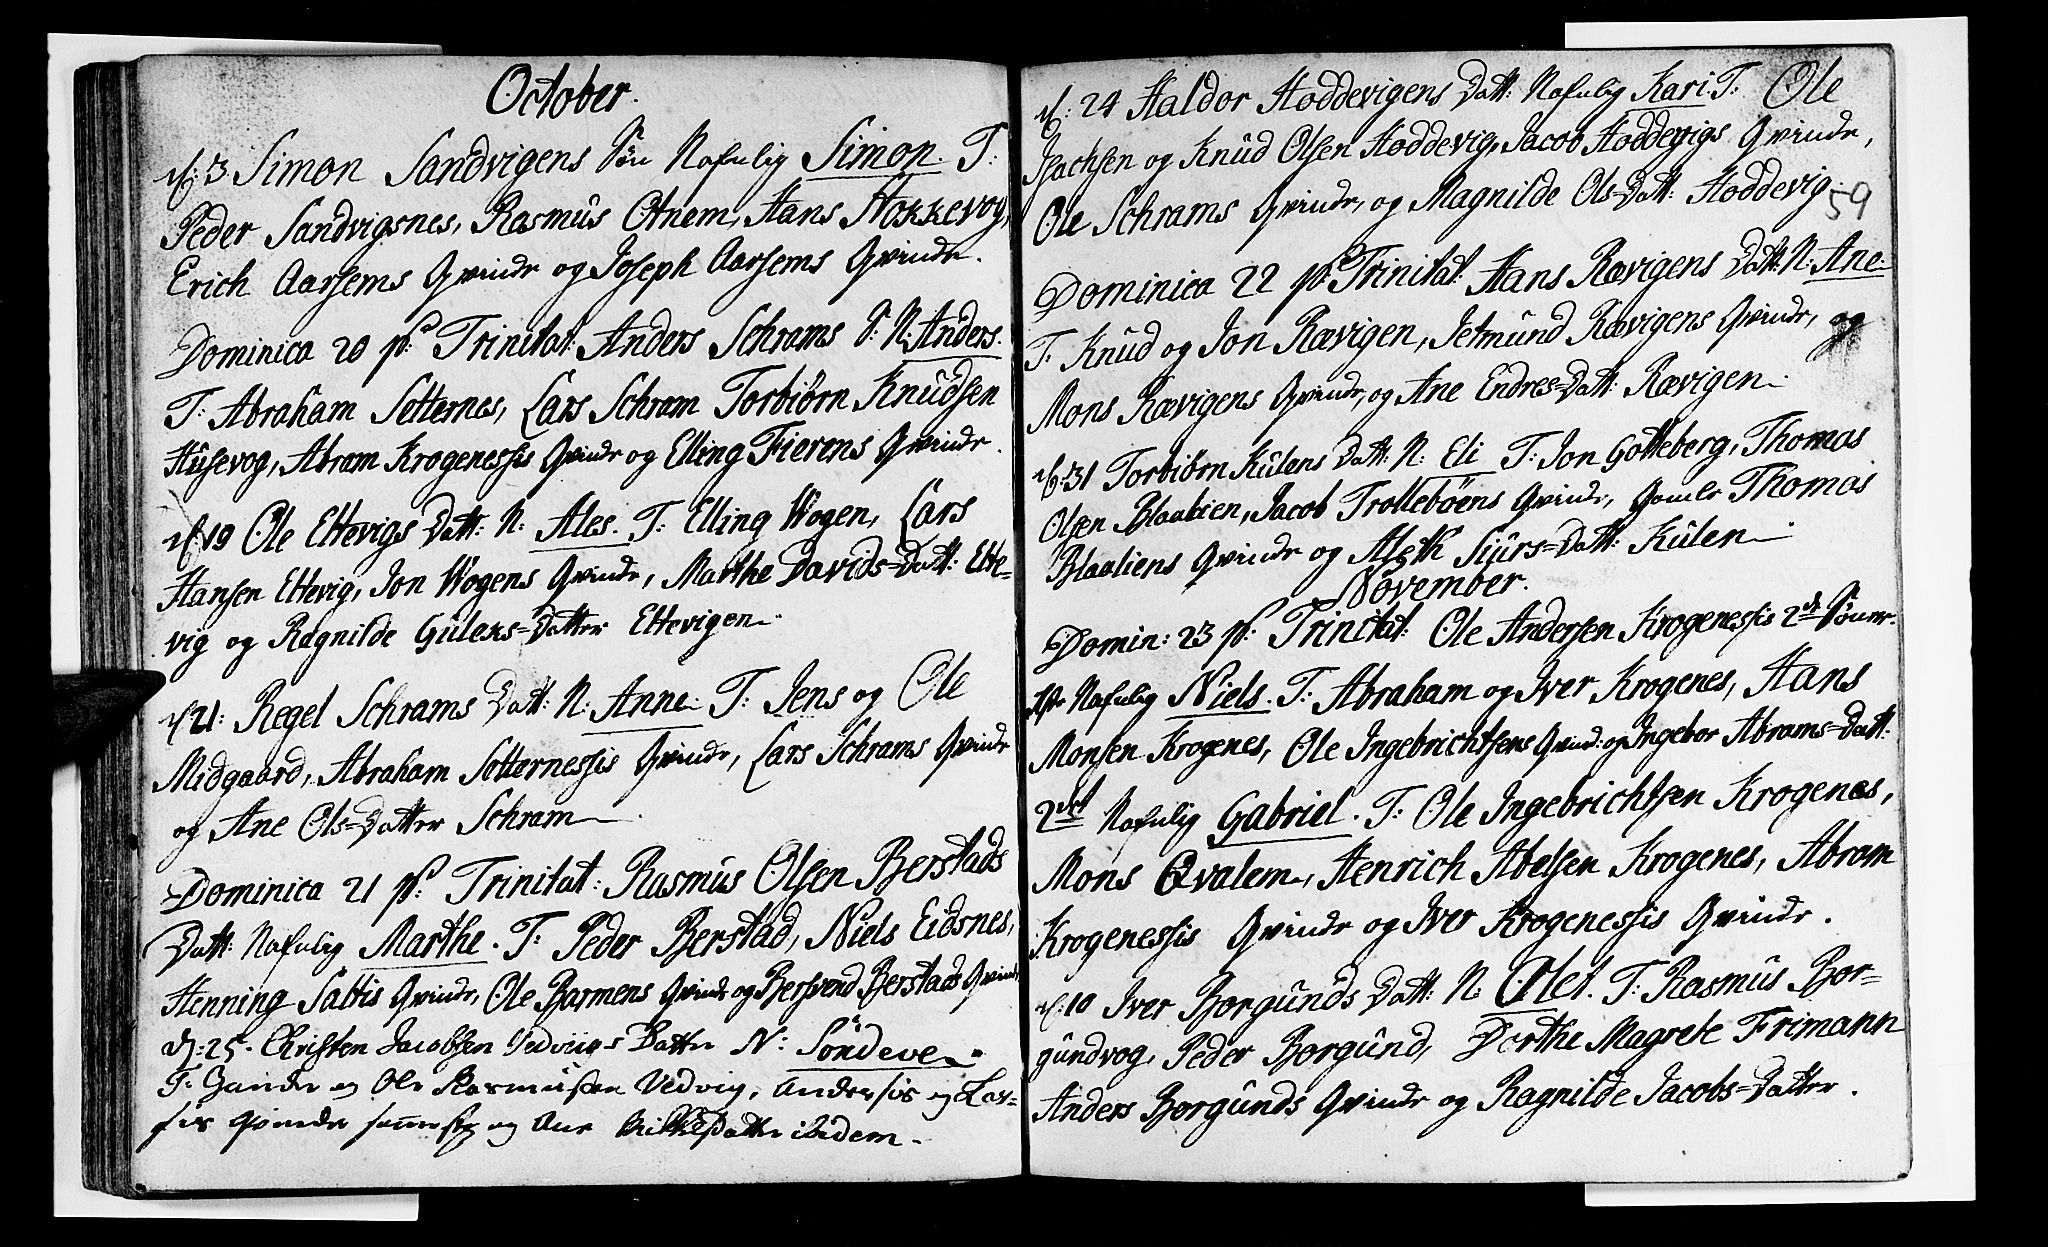 October.
d: 3 Simon Sandvigens Søn Nafnlig Simon. T:
Peder Sandvigsnes, Rasmus Otnem, Hans Hokkevog,
Erich Aarsems Qvinde og Joseph Aarsems Qvinde.
Dominica 20 p: Trinitat: Anders Schrams S: N: Anders.
T: Abraham Setternes, Lars Schram Torbiörn Knudsen
Husevog, Abram Krogenessis Qvinde og Elling Fierens Qvinde.
d: 19 Ole Ettevigs Datt: N: Ales. T: Elling Wogen, Lars
Hansen Ettevig, Jon Wogens Qvinde, Marthe Davids-Datt: Ette-
vig og Ragnilde Guleks-Datter Ettevigen.
d 21: Regel Schrams Datt: N: Anne T: Jens og Ole
Midgaard, Abraham Setternessis Qvinde, Lars Schrams Qvinde
og Ane Ols-Datter Schram.
Dominica 21 p: Trinitat: Rasmus Olsen Berstads
Datt: Nafnlig Marthe. T: Peder Berstad, Niels Eidsnes,
Henning Saltis Qvinde, Ole Barmens Qvinde og Bersvend Berstads Qvinde
d: 25. Christen Jacobsen Vedviigs Datter N: Söndeve.
T: og Ole Rasmussen Vedvig, Andersis og Lar-
sis Qvinde og Ane ibidem.
d: 24 Haldor Hoddevigens Datt: Nafnlig Kari. T: Ole
Isachsen og Knud Olsen Hoddevig, Jacob Hoddevigs Qvinde,
Ole Schrams Qvinde, og Magnilde Ols-Datt: Hoddevig.
59
Dominica 22 p: Trinitat: Hans Rævigens Datt: N: Ane
T: Knud og Jon Rævigen, Jetmund Rævigens Qvinde, og
Mons Rævigens Qvinde, og Ane Endres-Datt: Rævigen.
d: 31 Torbiörn Kulens Datt: N: Eli T: Jon Gotteberg, Thomas
Olsen Blaalien, Jacob Trolleböens Qvinde, Gamle Thomas
Blaaliens Qvinde og Aleth Siurs-Datt: Kulen
November.
Domin: 23 p: Trinitat: Ole Andersen Krogenessis 2de Sønner.
1ste Nafnlig Niels. T: Abraham og Iver Krogenes, Hans
Monsen Krogenes, Ole Ingebrichtsens Qvind: og Ingebor Abrams-Datt:
2det Nafnlig Gabriel. T: Ole Ingebrichtsen Krogenes,
Mons Qvalem, Henrich Abelsen Krogenes, Abram
Krogenessis Qvinde og Iver Krogenessis Qvinde.
d: 10 Iver Borgunds Datt: N: Olet. T: Rasmus Bor-
gundvog, Peder Borgund, Dorthe Magrete Frimann
Anders Borgunds Qvinde og Ragnilde Jacobs-Datter.